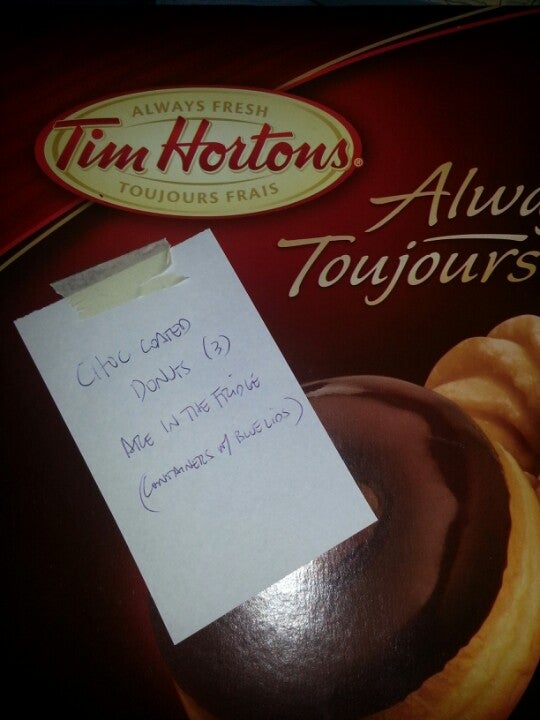 ALWAYS FRESH
Tim Hortons®
TOUJOURS FRAIS
Alwa
Toujours
CHOC COATED
DONUTS (3)
ARE IN THE FRIDGE
(CONTAINERS w/ BLUE LIDS)